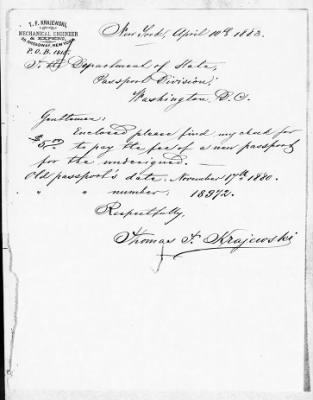 T. F. KRAJEWSKI,
MECHANICAL ENGINEER
& EXPERT,
BROADWAY, NEW YORK
P.O.B.
New York, April 10th 1883.
To the Department of State,
Passport Division,
Washington D.C.
Gentlemen:
Enclosed please find my check for
$5.00 to pay the fee of a new passport
for the undersigned. —
Old passport's date: November 17th 1880.
" " number: 18972.
Respectfully,
Thomas F. Krajewski